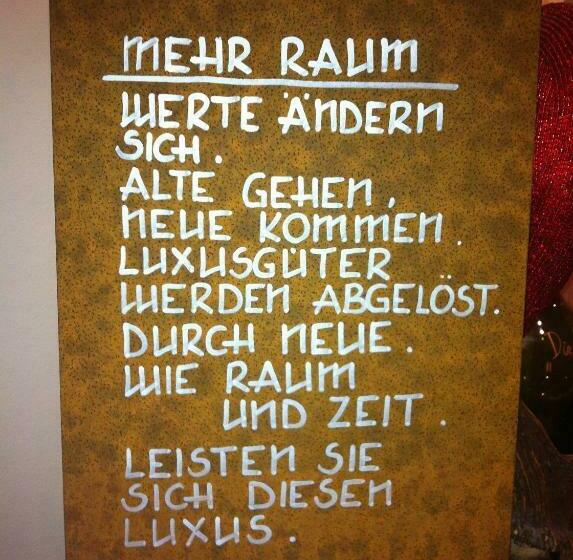 MEHR RAUM
WERTE ÄNDERN
SICH.
ALTE GEHEN,
NEUE KOMMEN.
LUXUSGÜTER
WERDEN ABGELÖST.
DURCH NEUE.
WIE RAUM
UND ZEIT.
LEISTEN SIE
SICH DIESEN
LUXUS.